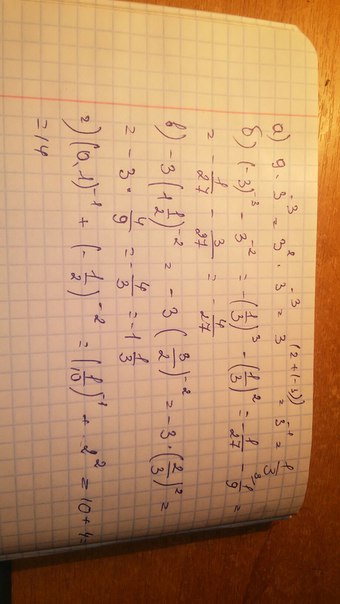 а) 9 · 3⁻³ = 3² · 3⁻³ = 3⁽²⁺⁽⁻³⁾⁾ = 3⁻¹ = 1/3
б) (-3)⁻³ - 3⁻² = -(1/3)³ - (1/3)² = -1/27 - 1/9 ³ =
= -1/27 - 3/27 = -4/27
в) -3 (1 1/2)⁻² = -3 (3/2)⁻² = -3 · (2/3)² =
= -3 · 4/9 = -4/3 = -1 1/3
г) (0,1)⁻¹ + (-1/2)⁻² = (1/10)⁻¹ + 2² = 10 + 4 =
= 14